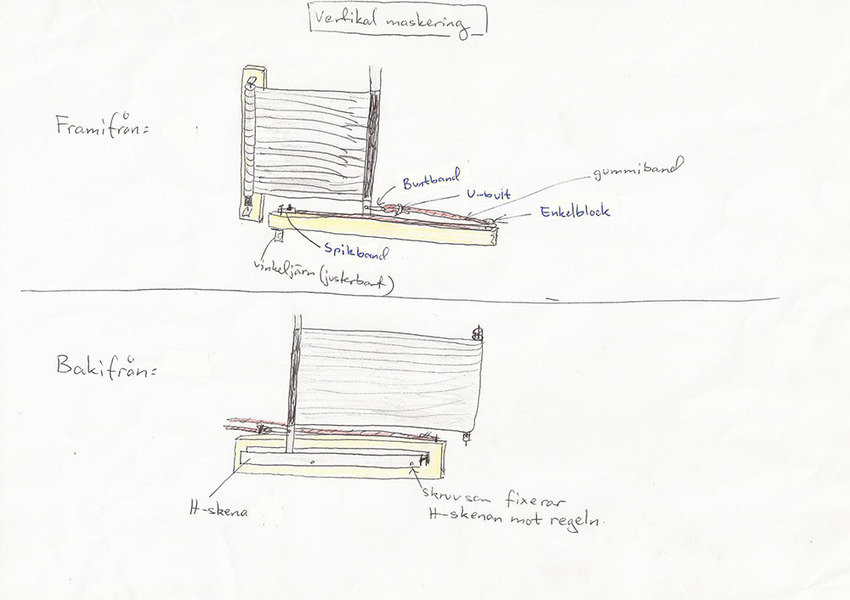 Vertikal maskering
Framifrån:
Buntband
U-bult
gummiband
Enkelblock
Spikband
vinkeljärn (justerbart)
Bakifrån:
H-skena
skruv som fixerar
H-skenan mot regeln.